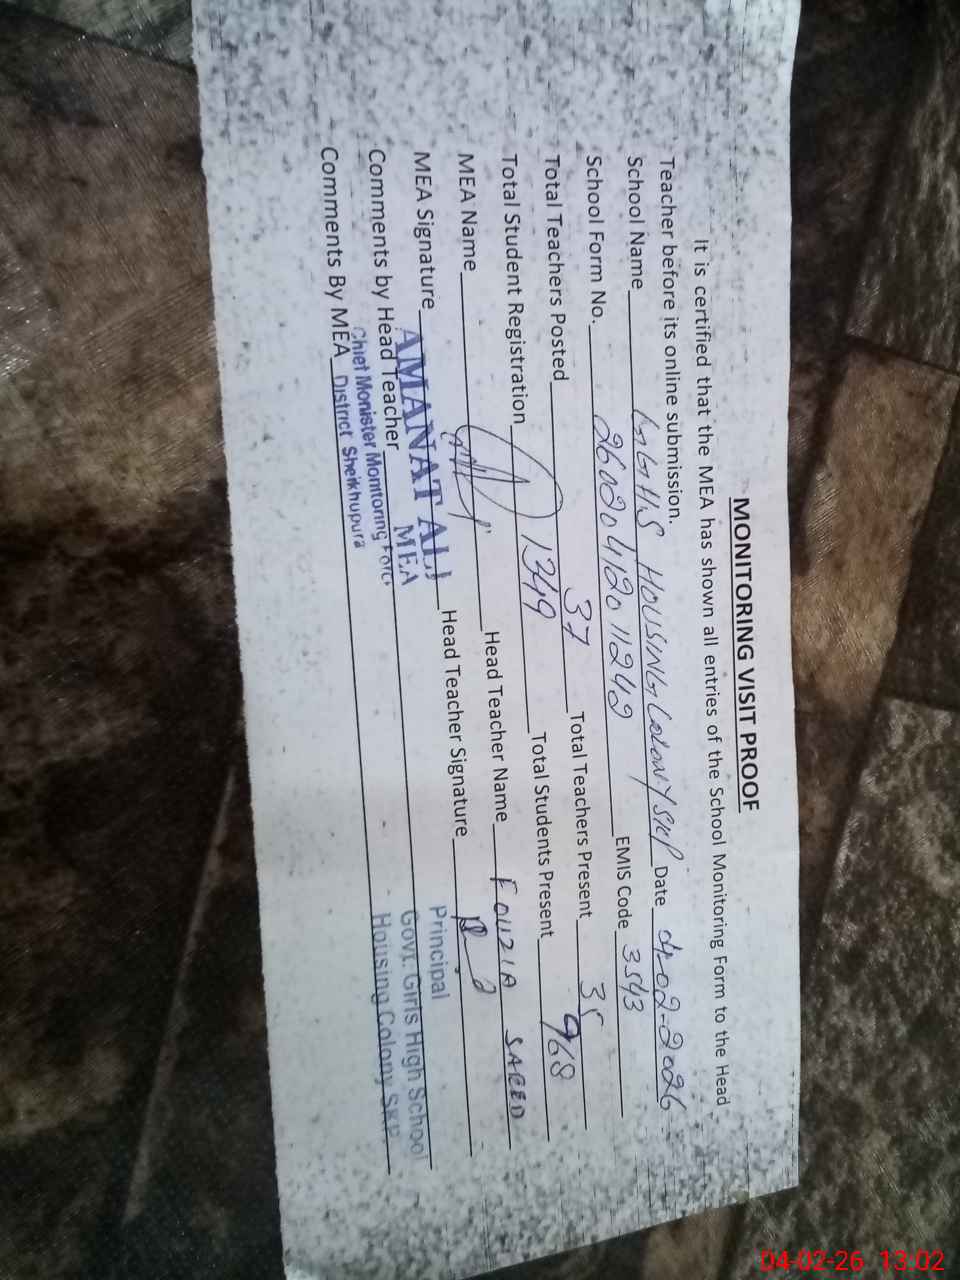 MONITORING VISIT PROOF
It is certified that the MEA has shown all entries of the School Monitoring Form to the Head
Teacher before its online submission.
School Name GGHS HOUSING Colony SKP Date 04-02-2026
School Form No. EMIS Code 3543
Total Teachers Posted 37 Total Teachers Present 35
Total Student Registration 1349 Total Students Present 968
MEA Name Head Teacher Name FOUZIA SAEED
MEA Signature AMANAT ALI Head Teacher Signature
MEA
Principal
Comments by Head Teacher Govt. Girls High School
Chief Monister Monitoring Force
Housing Colony SKP
Comments By MEA District Sheikhupura
04-02-26 13:02